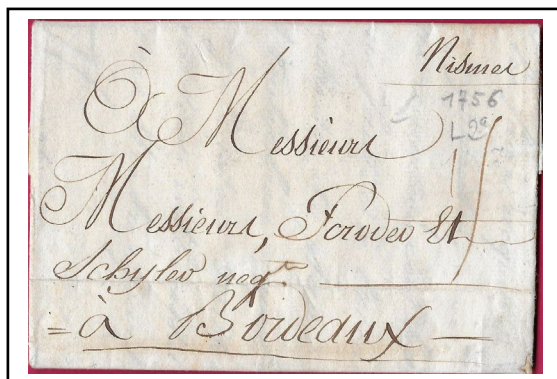 Nismes
1756
L 2e
À Messieurs
Messieurs, Scroder Et
Schyler negts
= à Bordeaux